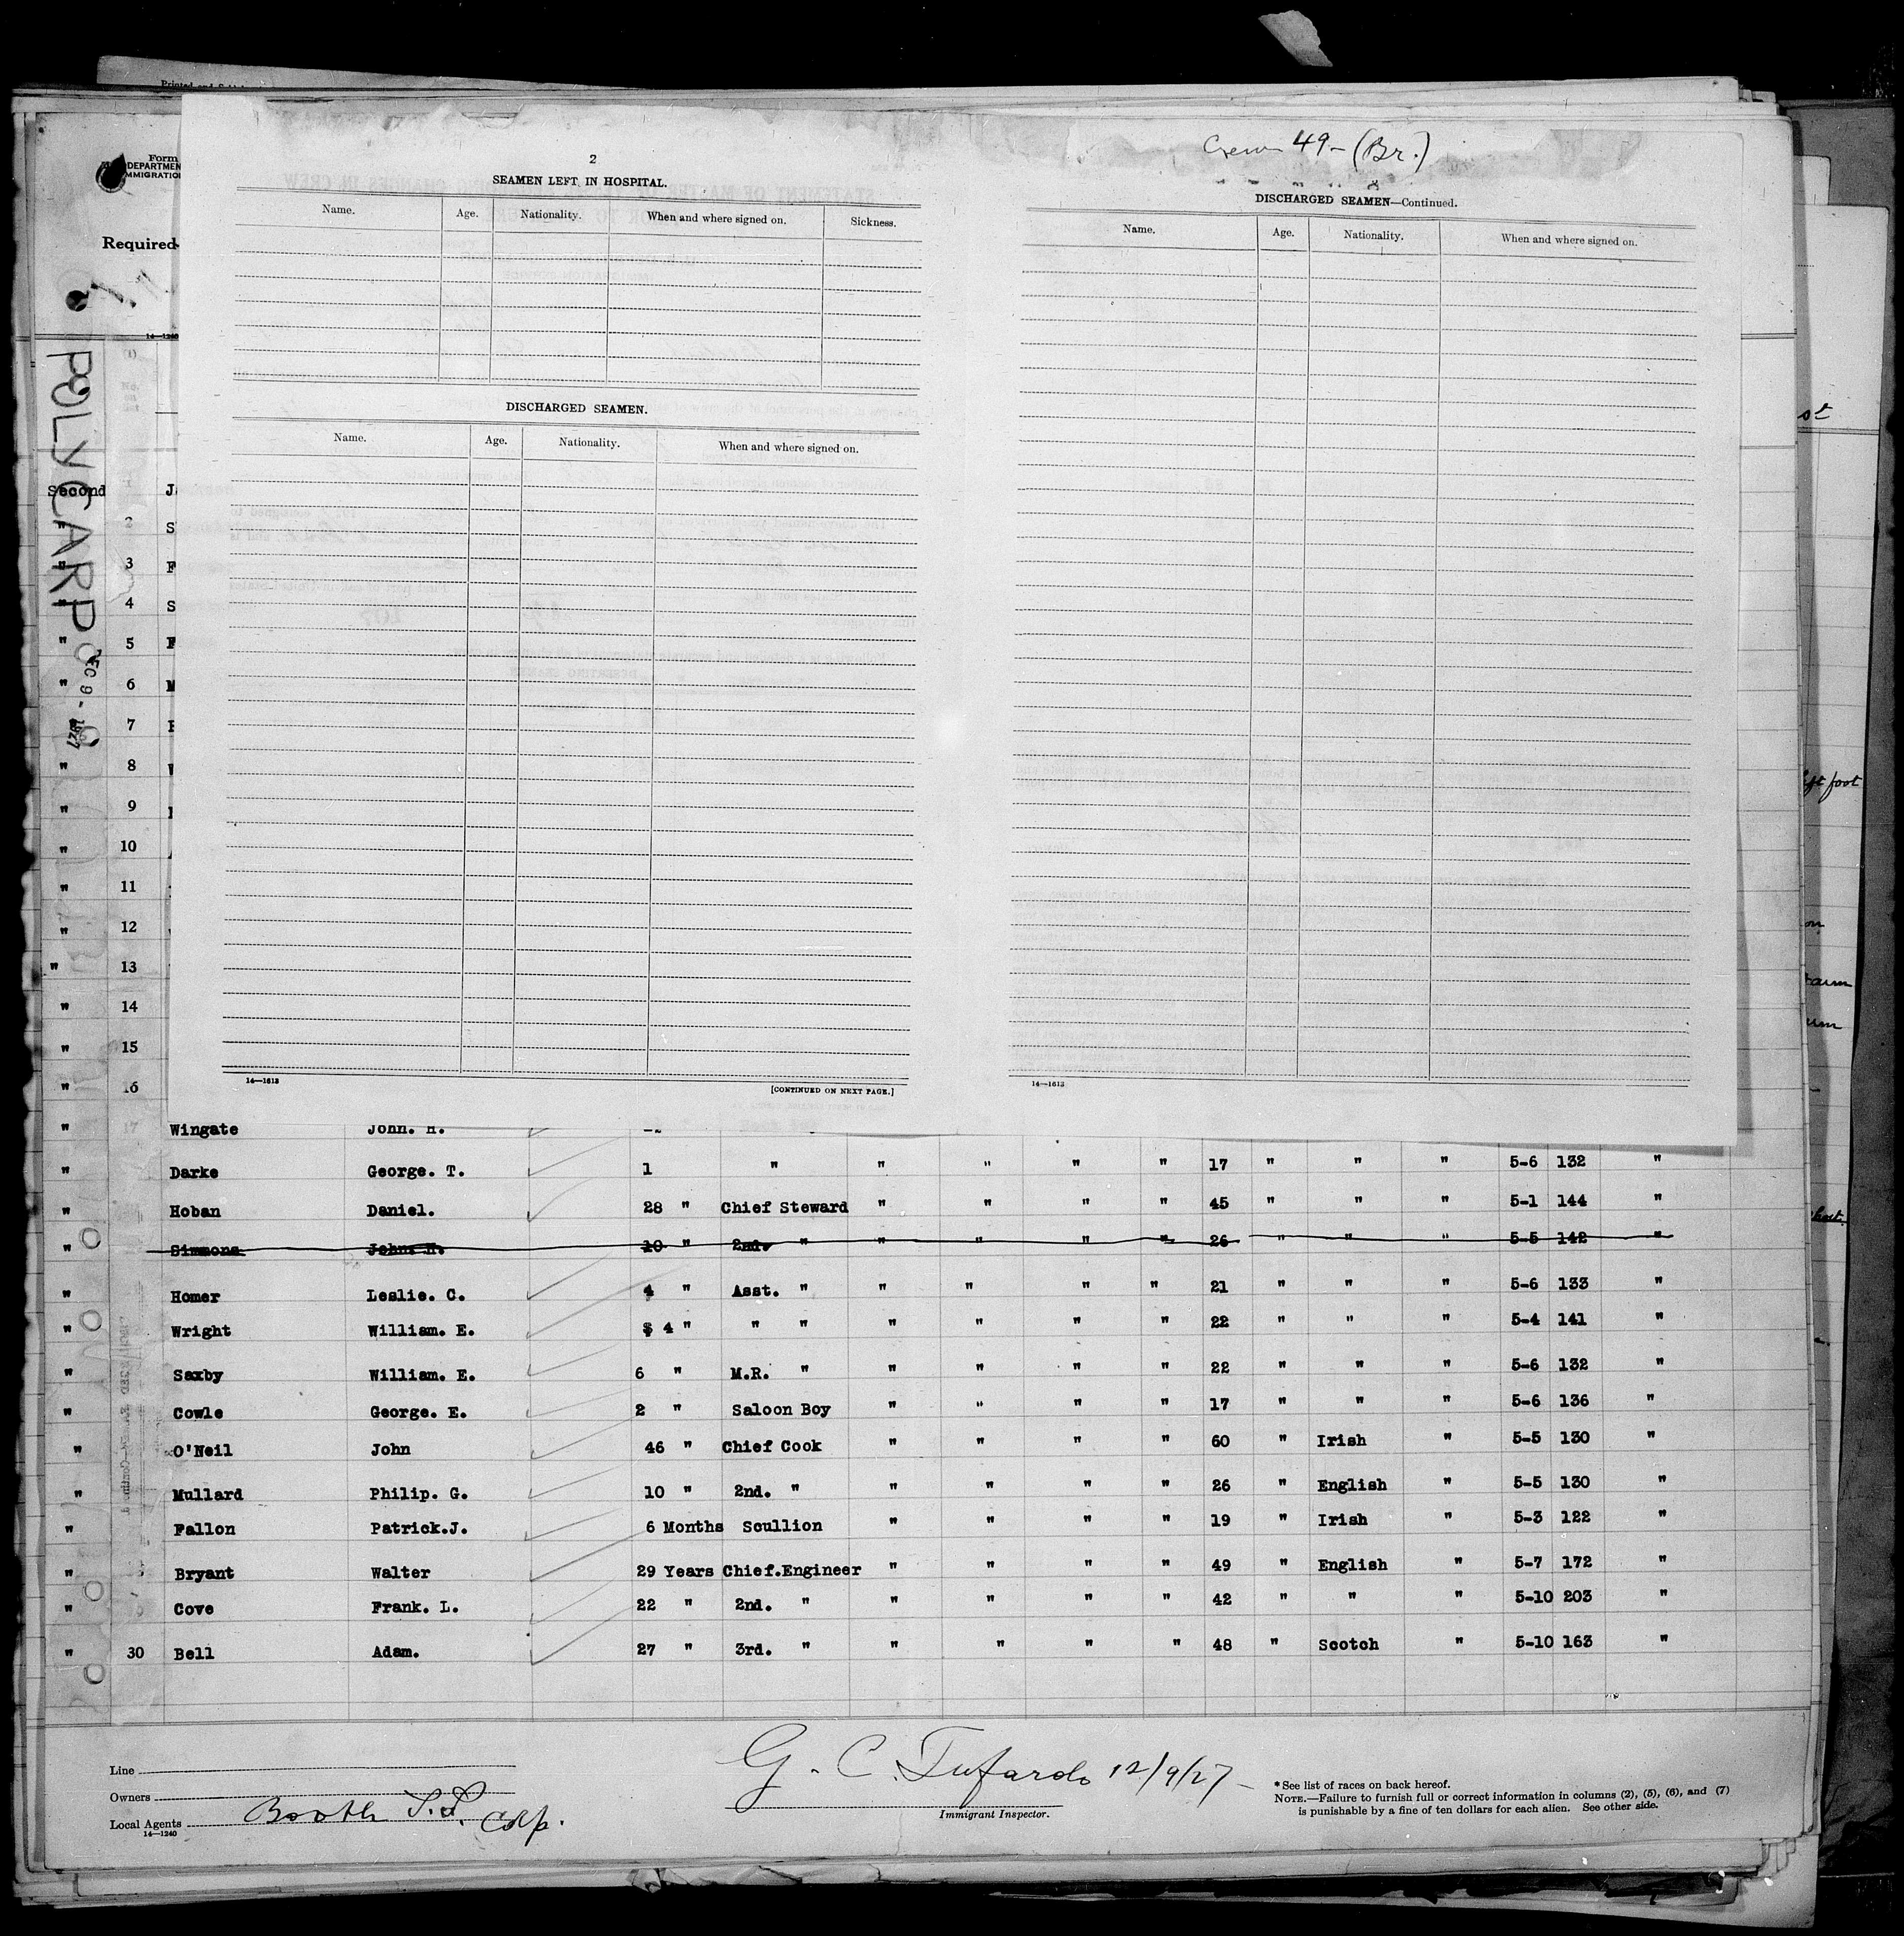 Printed and
Form
DEPARTMEN
MMIGRATION
Required
14—1240
POLYCARP
DEC 9 - 1927
Crew 49 - (Br.)
2
SEAMEN LEFT IN HOSPITAL.
Name. Age. Nationality. When and where signed on. Sickness.
DISCHARGED SEAMEN.
Name. Age. Nationality. When and where signed on.
14—1613
[CONTINUED ON NEXT PAGE.]
DISCHARGED SEAMEN—Continued.
Name. Age. Nationality. When and where signed on.
14—1613
st
left foot
arm
Second 1 J
" 2 S
" 3 F
" 4 S
" 5 F
" 6 M
" 7
" 8
" 9
" 10
" 11
" 12
" 13
" 14
" 15
" 16
" 17 Wingate John. H.
" Darke George. T. 1 " " " " " 17 " " " 5-6 132 "
" Hoban Daniel. 28 " Chief Steward " " " " 45 " " " 5-1 144 "
" Simmons John. H. 10 " 2nd. " " " " " 26 " " " 5-5 142 "
" Homer Leslie. C. 4 " Asst. " " " " " 21 " " " 5-6 133 "
" Wright William. E. $ 4 " " " " " " " 22 " " " 5-4 141 "
" Saxby William. E. 6 " M.R. " " " " " 22 " " " 5-6 132 "
" Cowle George. E. 2 " Saloon Boy " " " " 17 " " " 5-6 136 "
" O'Neil John 46 " Chief Cook " " " " 60 " Irish " 5-5 130 "
" Mullard Philip. G. 10 " 2nd. " " " " " 26 " English " 5-5 130 "
" Fallon Patrick.J. 6 Months Scullion " " " " 19 " Irish " 5-3 122 "
" Bryant Walter 29 Years Chief.Engineer " " " " 49 " English " 5-7 172 "
" Cove Frank. L. 22 " 2nd. " " " " " 42 " " " 5-10 203 "
" 30 Bell Adam. 27 " 3rd. " " " " " 48 " Scotch " 5-10 163 "
Line
Owners
Local Agents Booth S.S. Corp.
14—1240
G. C. Tufardo 12/9/27
Immigrant Inspector.
* See list of races on back hereof.
NOTE.—Failure to furnish full or correct information in columns (2), (5), (6), and (7)
is punishable by a fine of ten dollars for each alien. See other side.